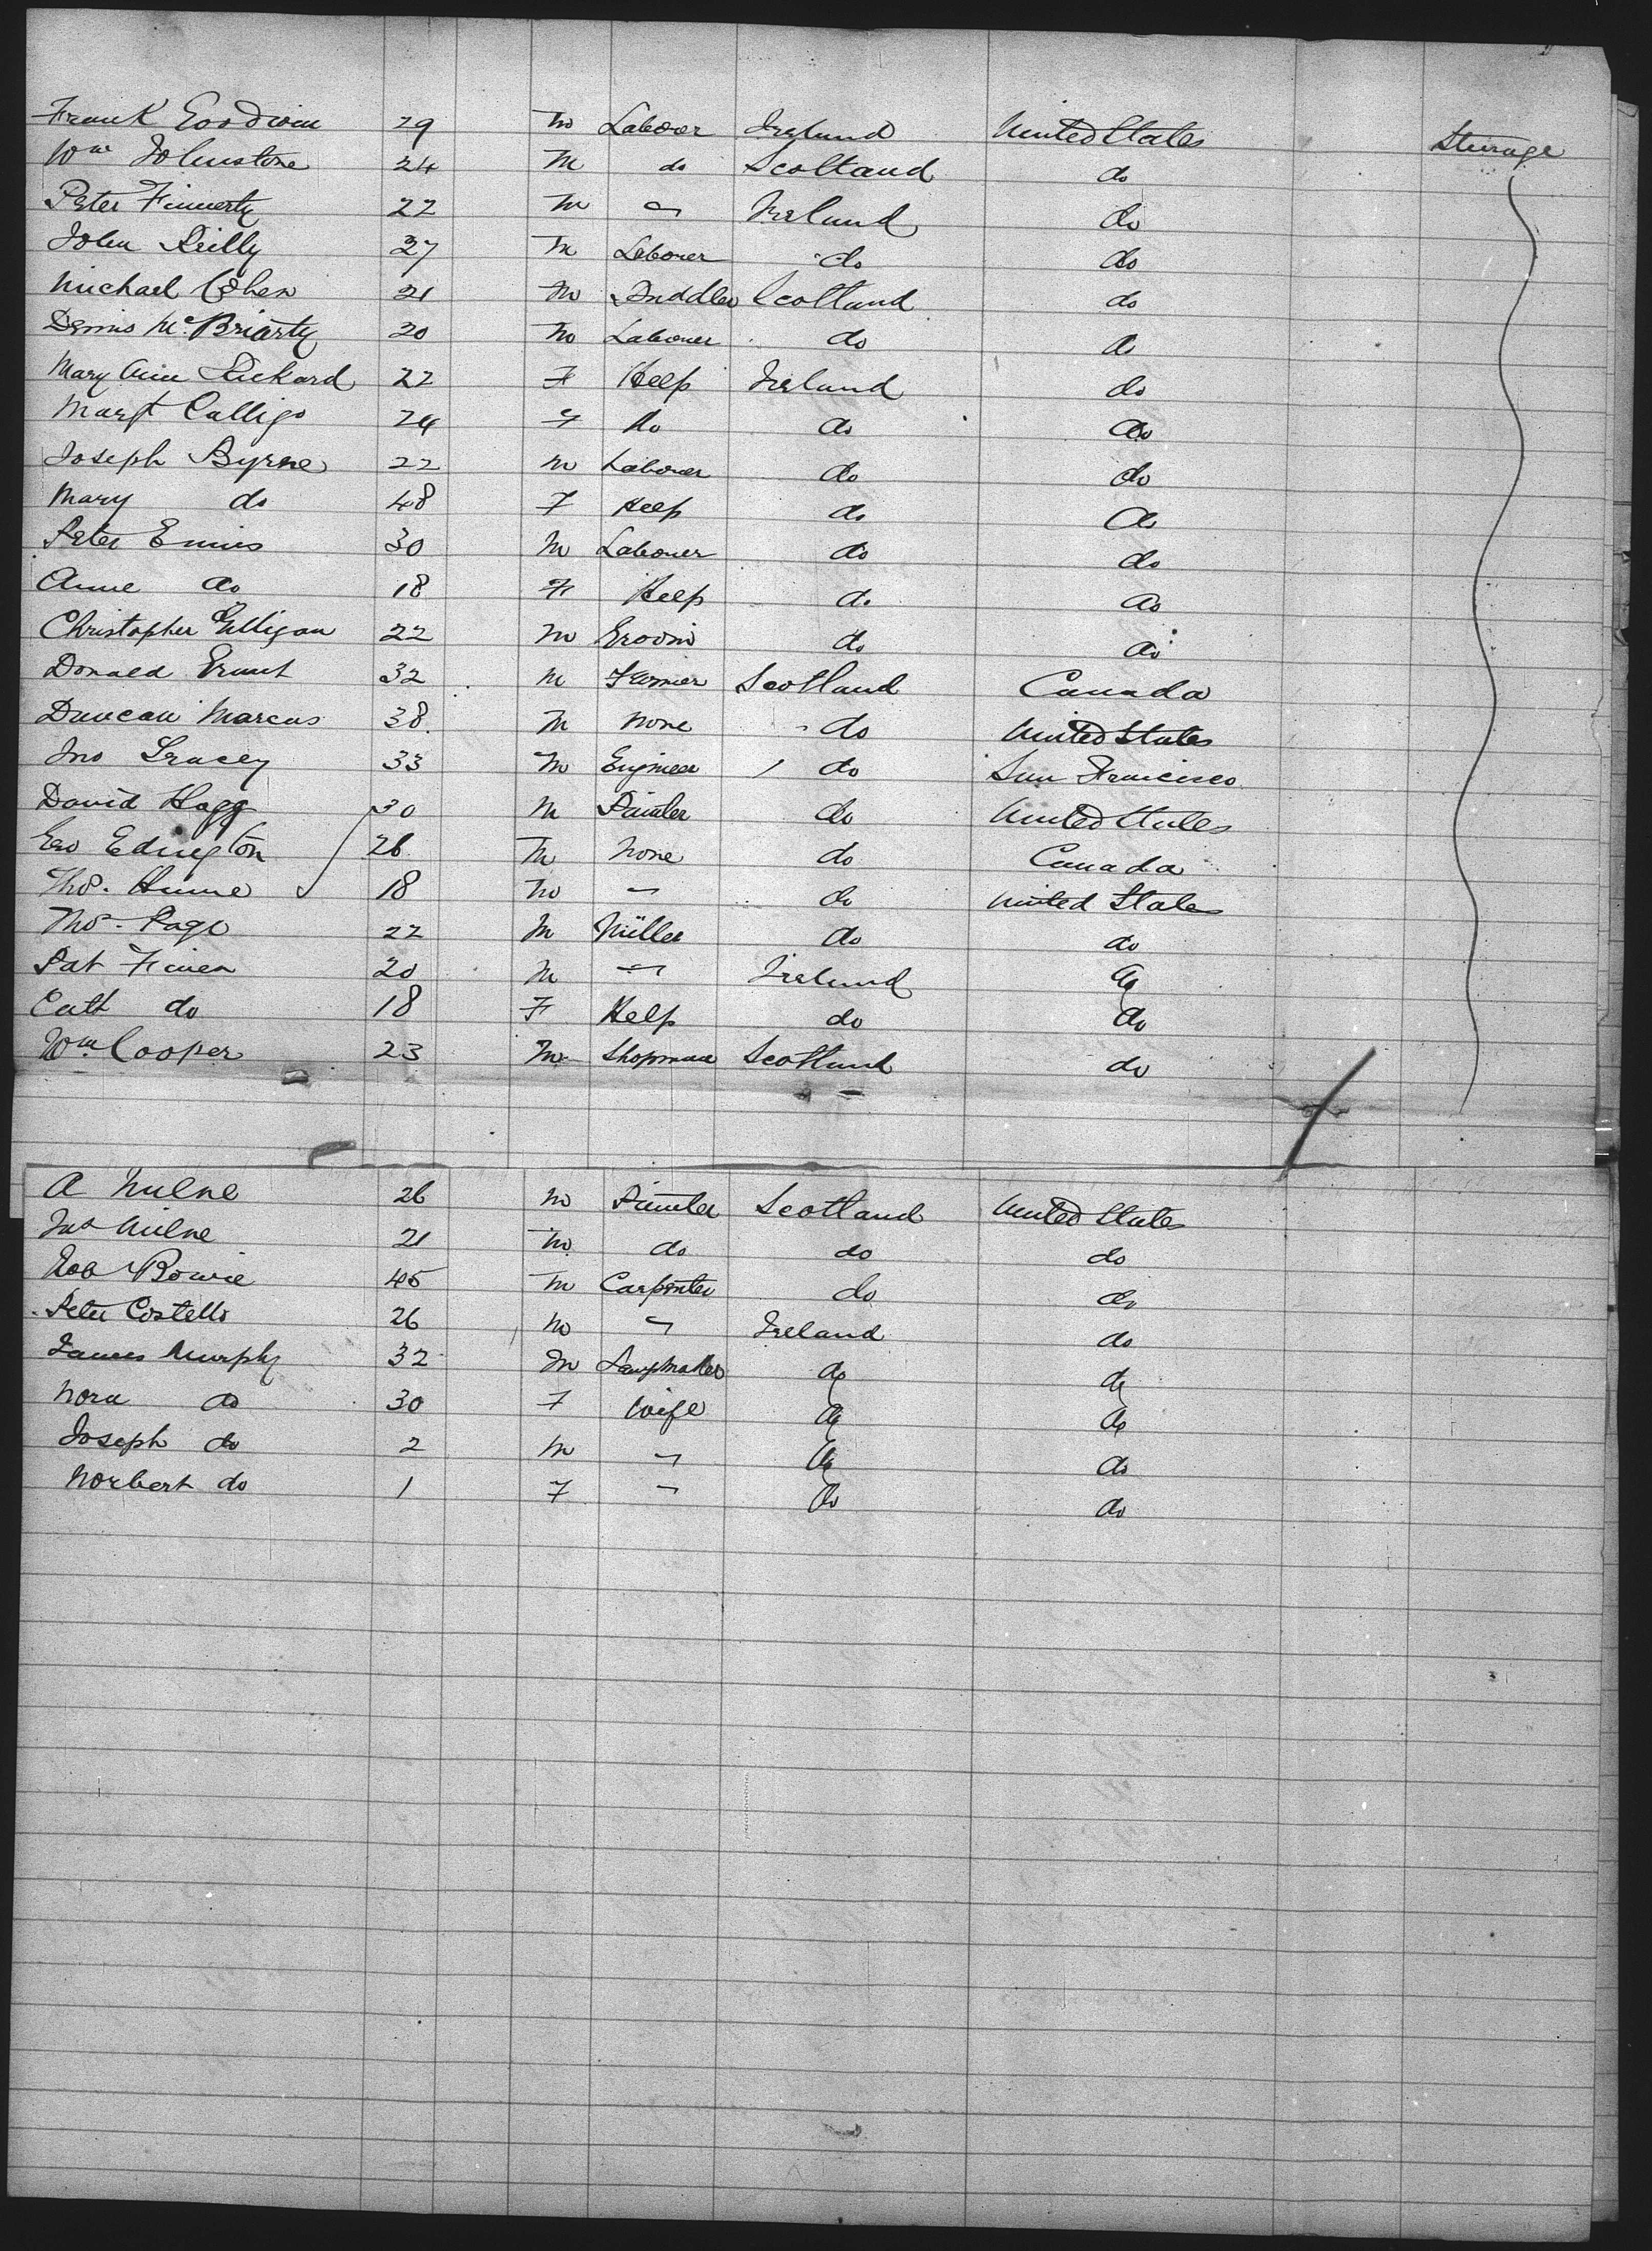 Frank Goodwin 29 M Laborer Ireland United States Steerage
Wm Johnstone 24 M do Scotland do
Peter Finnerty 22 M " Ireland do
John Reilly 27 M Laborer do do
Michael Cohen 21 M Puddler Scotland do
Dennis McBriarty 20 M Laborer do do
Mary Ann Rickard 22 F Help Ireland do
Margt Calligo 24 F do do do
Joseph Byrne 22 M Laborer do do
Mary do 48 F Help do do
Peter Ennis 30 M Laborer do do
Anne do 18 F Help do do
Christopher Gilligan 22 M Groom do do
Donald Grant 32 M Farmer Scotland Canada
Duncan Marcus 38 M none do United States
Jno Gracey 33 M Engineer do San Francisco
David Hogg 30 M Painter do United States
Geo Edington 26 M None do Canada
Thos. Hume 18 M " do United States
Thos. Page 22 M Miller do do
Pat Finen 20 M " Ireland do
Cath do 18 F Help do do
Wm Cooper 23 M Shopman Scotland do
A Milne 26 M Painter Scotland United States
Jas Milne 21 M do do do
Rob Bowie 45 M Carpenter do do
Peter Costello 26 M " Ireland do
James Murphy 32 M Lampmaker do do
Nora do 30 F Wife do do
Joseph do 2 M " do do
Norbert do 1 F " do do